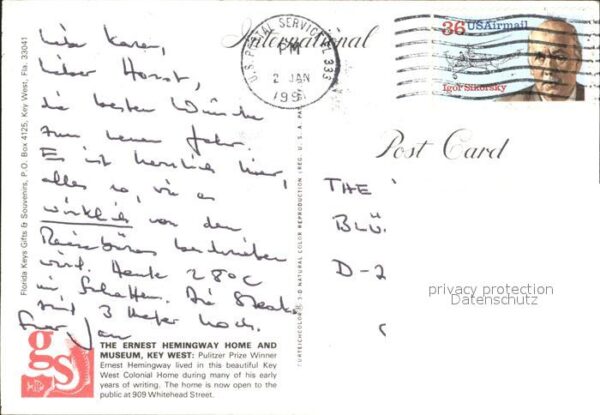 Florida Keys Gifts & Souvenirs, P.O. Box 4125, Key West, Fla. 33041
Liebe Karen,
lieber Horst,
die besten Wünsche
zum neuen Jahr.
Es ist herrlich hier,
alles so, wie es
wirklich von den
Reisebüros beschrieben
wird. Heute 28°C
im Schatten. Die Steaks
sind 3 Meter hoch.
Euer Jan
gs
THE ERNEST HEMINGWAY HOME AND
MUSEUM, KEY WEST: Pulitzer Prize Winner
Ernest Hemingway lived in this beautiful Key
West Colonial Home during many of his early
years of writing. The home is now open to the
public at 909 Whitehead Street.
International
Post Card
U.S. POSTAL SERVICE FL 333
PM
2 JAN
199
36 USAirmail
Igor Sikorsky
CURTEICHCOLOR® 3-D NATURAL COLOR REPRODUCTION (REG. U.S.A. PAT.
THE
BLÜ.
D-2
privacy protection
Datenschutz